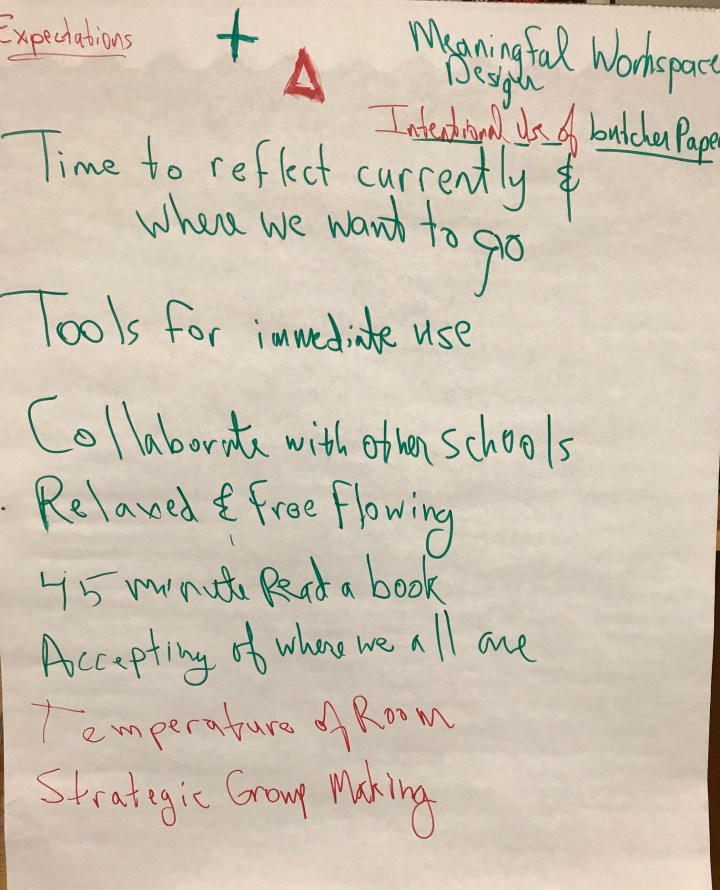 Expectations
+
Δ
Meaningful Workspace
Design
Intentional Use of butcher Paper
Time to reflect currently &
where we want to go
Tools for immediate use
Collaborate with other schools
Relaxed & free flowing
45 minute Read a book
Accepting of where we all are
Temperature of Room
Strategic Group Making